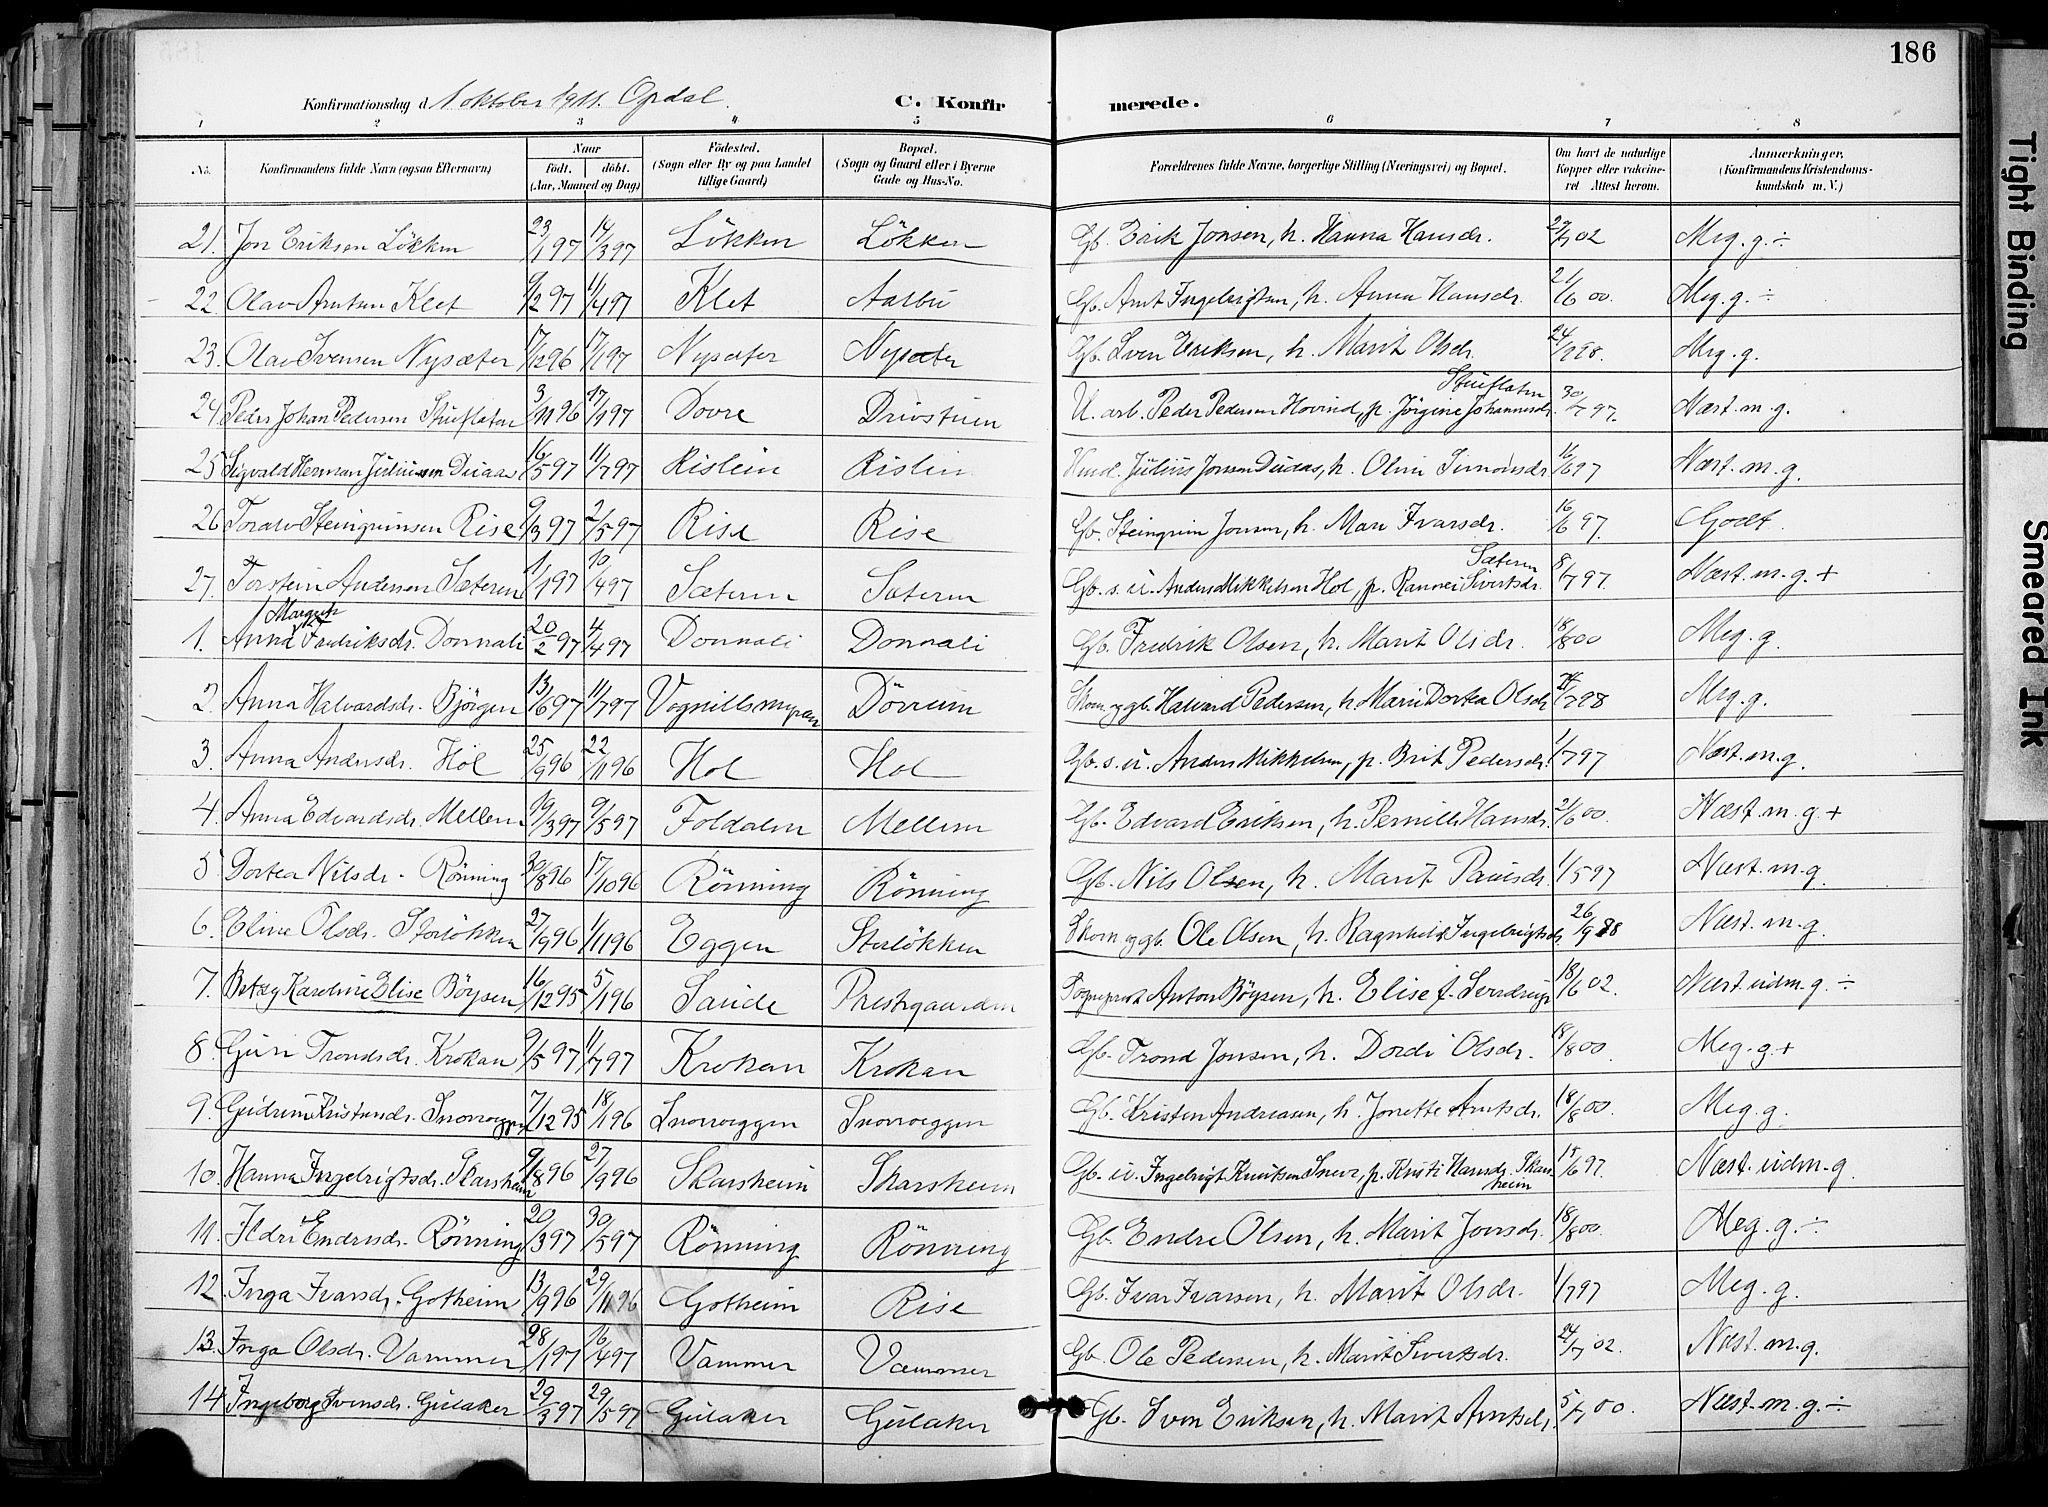 186
Konfirmationsdag d. 1 oktober 1911. Opdal.
C. Konfirmerede.
1 2 3 4 5 6 7 8
No. Konfirmandens fulde Navn (ogsaa Efternavn) Naar født. døbt. (Aar, Maaned og Dag) Fødested. (Sogn eller By og paa Landet tillige Gaard) Bopæl. (Sogn og Gaard eller i Byerne Gade og Hus-No. Forældrenes fulde Navne, borgerlige Stilling (Næringsvei) og Bopæl. Om havt de naturlige Kopper eller vakcineret Attest herom. Anmærkninger. (Konfirmandens Kristendomskundskab m. V.)
21. Jon Eriksen Løkken 23/1 97 14/3 97 Løkken Løkken Gb. Erik Jonsen, h. Hanna Hansdr. 02 Meg. g. ÷
22. Olav Arntsen Klet 9/12 97 11/4 97 Klet Aalbu Gb. Arnt Ingebrigtsen, h. Anna Hansdr. 21/6 00. Meg. g. ÷
23. Olav Svensen Nysæter 17/12 96 17/1 97 Nysæter Nysæter Gb. Sven Eriksen, h. Marit Olsdr. 24/7 98. Meg. g.
24. Peder Johan Pedersen Stuiflaten 3/11 96 17/1 97 Dovre Drivstuen U. arb. Peder Pedersen Hovind, p. Jørgine Johannesdr. Stuiflaten 30/7 97. Næst. m. g.
25 Sigvald Herman Juliussen Duaas 16/5 97 11/7 97 Rislein Rislin Husd. Julius Jonsen Duaas, h. Oline Simonsdr. 16/6 97 Næst. m. g.
26 Toralv Steingrimsen Rise 9/3 97 2/5 97 Rise Rise Gb. Steingrim Jonsen, h. Mari Ivarsdr. 16/6 97. Godt.
27. Torstein Andersen Sæteren 1/1 97 10/4 97 Sæteren Sæteren Gb. s. u. Anders Mikkelsen Hol, p. Rannei Sivertsdr. Sæteren 8/7 97. Næst. m. g. +
1. Anna Margit Fredriksdr. Donnali 20/2 97 4/4 97 Donnali Donnali Gb. Fredrik Olsen, h. Marit Olsdr. 18/8 00 Meg. g.
2. Anna Halvardsdr. Bjørgen 13/6 97 11/7 97 Vognillsmyran Dørrum Skom. og gb. Halvard Pedersen, h. Marie Dortea Olsdr. 98 Meg. g.
3. Anna Andersdr. Hol 25/9 96 22/11 96 Hol Hol Gb. s. u. Anders Mikkelsen, p. Brit Pedersdr. 1/7 97 Næst. m. g.
4. Anna Edvardsdr. Mellem 19/3 97 9/5 97 Foldalen Mellem Gb. Edvard Eriksen, h. Pernille Hansdr. 21/6 00. Næst. m. g. +
5 Dortea Nilsdr. Rønning 30/8 96 17/10 96 Rønning Rønning Gb. Nils Olsen, h. Marit Paulsdr. 1/5 97 Næst. m. g.
6. Eline Olsdr. Storløkken 27/9 96 1/11 96 Eggen Storløkken Skom. og gb. Ole Olsen, h. Ragnhild Ingebrigtsdr. 26/9 98 Næst. m. g.
7. Betzy Karoline Elise Bøysen 16/12 95 5/1 96 Saude Prestgaarden Sogneprest Anton Bøysen, h. Elise f. 18/6 02. Næst. udm. g. ÷
8. Guri Trondsdr. Krokan 9/5 97 11/7 97 Krokan Krokan Gb. Trond Jonsen, h. Dordi Olsdr. 18/8 00. Meg. g +
9. Gudrun Kristensdr. Snoreggen 7/12 95 18/1 96 Snoreggen Snoreggen Gb. Kristen Andreasen, h. Jonette Arntsdr. 18/8 00. Meg. g.
10. Hanna Ingebrigtsdr. Skarsheim 9/8 96 27/9 96 Skarsheim Skarsheim Gb. u. Ingebrigt Knutsen Snuve, p. Kristi Hansdr. Skarsheim 15/6 97. Næst. udm. g
11. Ildri Endresdr. Rønning 20/3 97 30/5 97 Rønning Rønning Gb. Endre Olsen, h. Marit Jonsdr. 18/8 00. Meg. g. ÷
12. Inga Ivarsdr. Gotheim 13/9 96 29/11 96 Gotheim Rise Gb. Ivar Ivarsen, h. Marit Olsdr. 1/7 97 Meg. g.
13. Inga Olsdr. Vammer 28/1 97 16/4 97 Vammer Vammer Gb. Ole Pedersen, h. Marit Sivertsdr. 24/7 02. Næst. m. g.
14 Ingeborg Svensdr. Gulaker 29/3 97 29/5 97 Gulaker Gulaker Gb. Sven Eriksen, h. Marit Arntsd. 5/7 00. Næst. m. g. ÷
Tight Binding
Smeared Ink